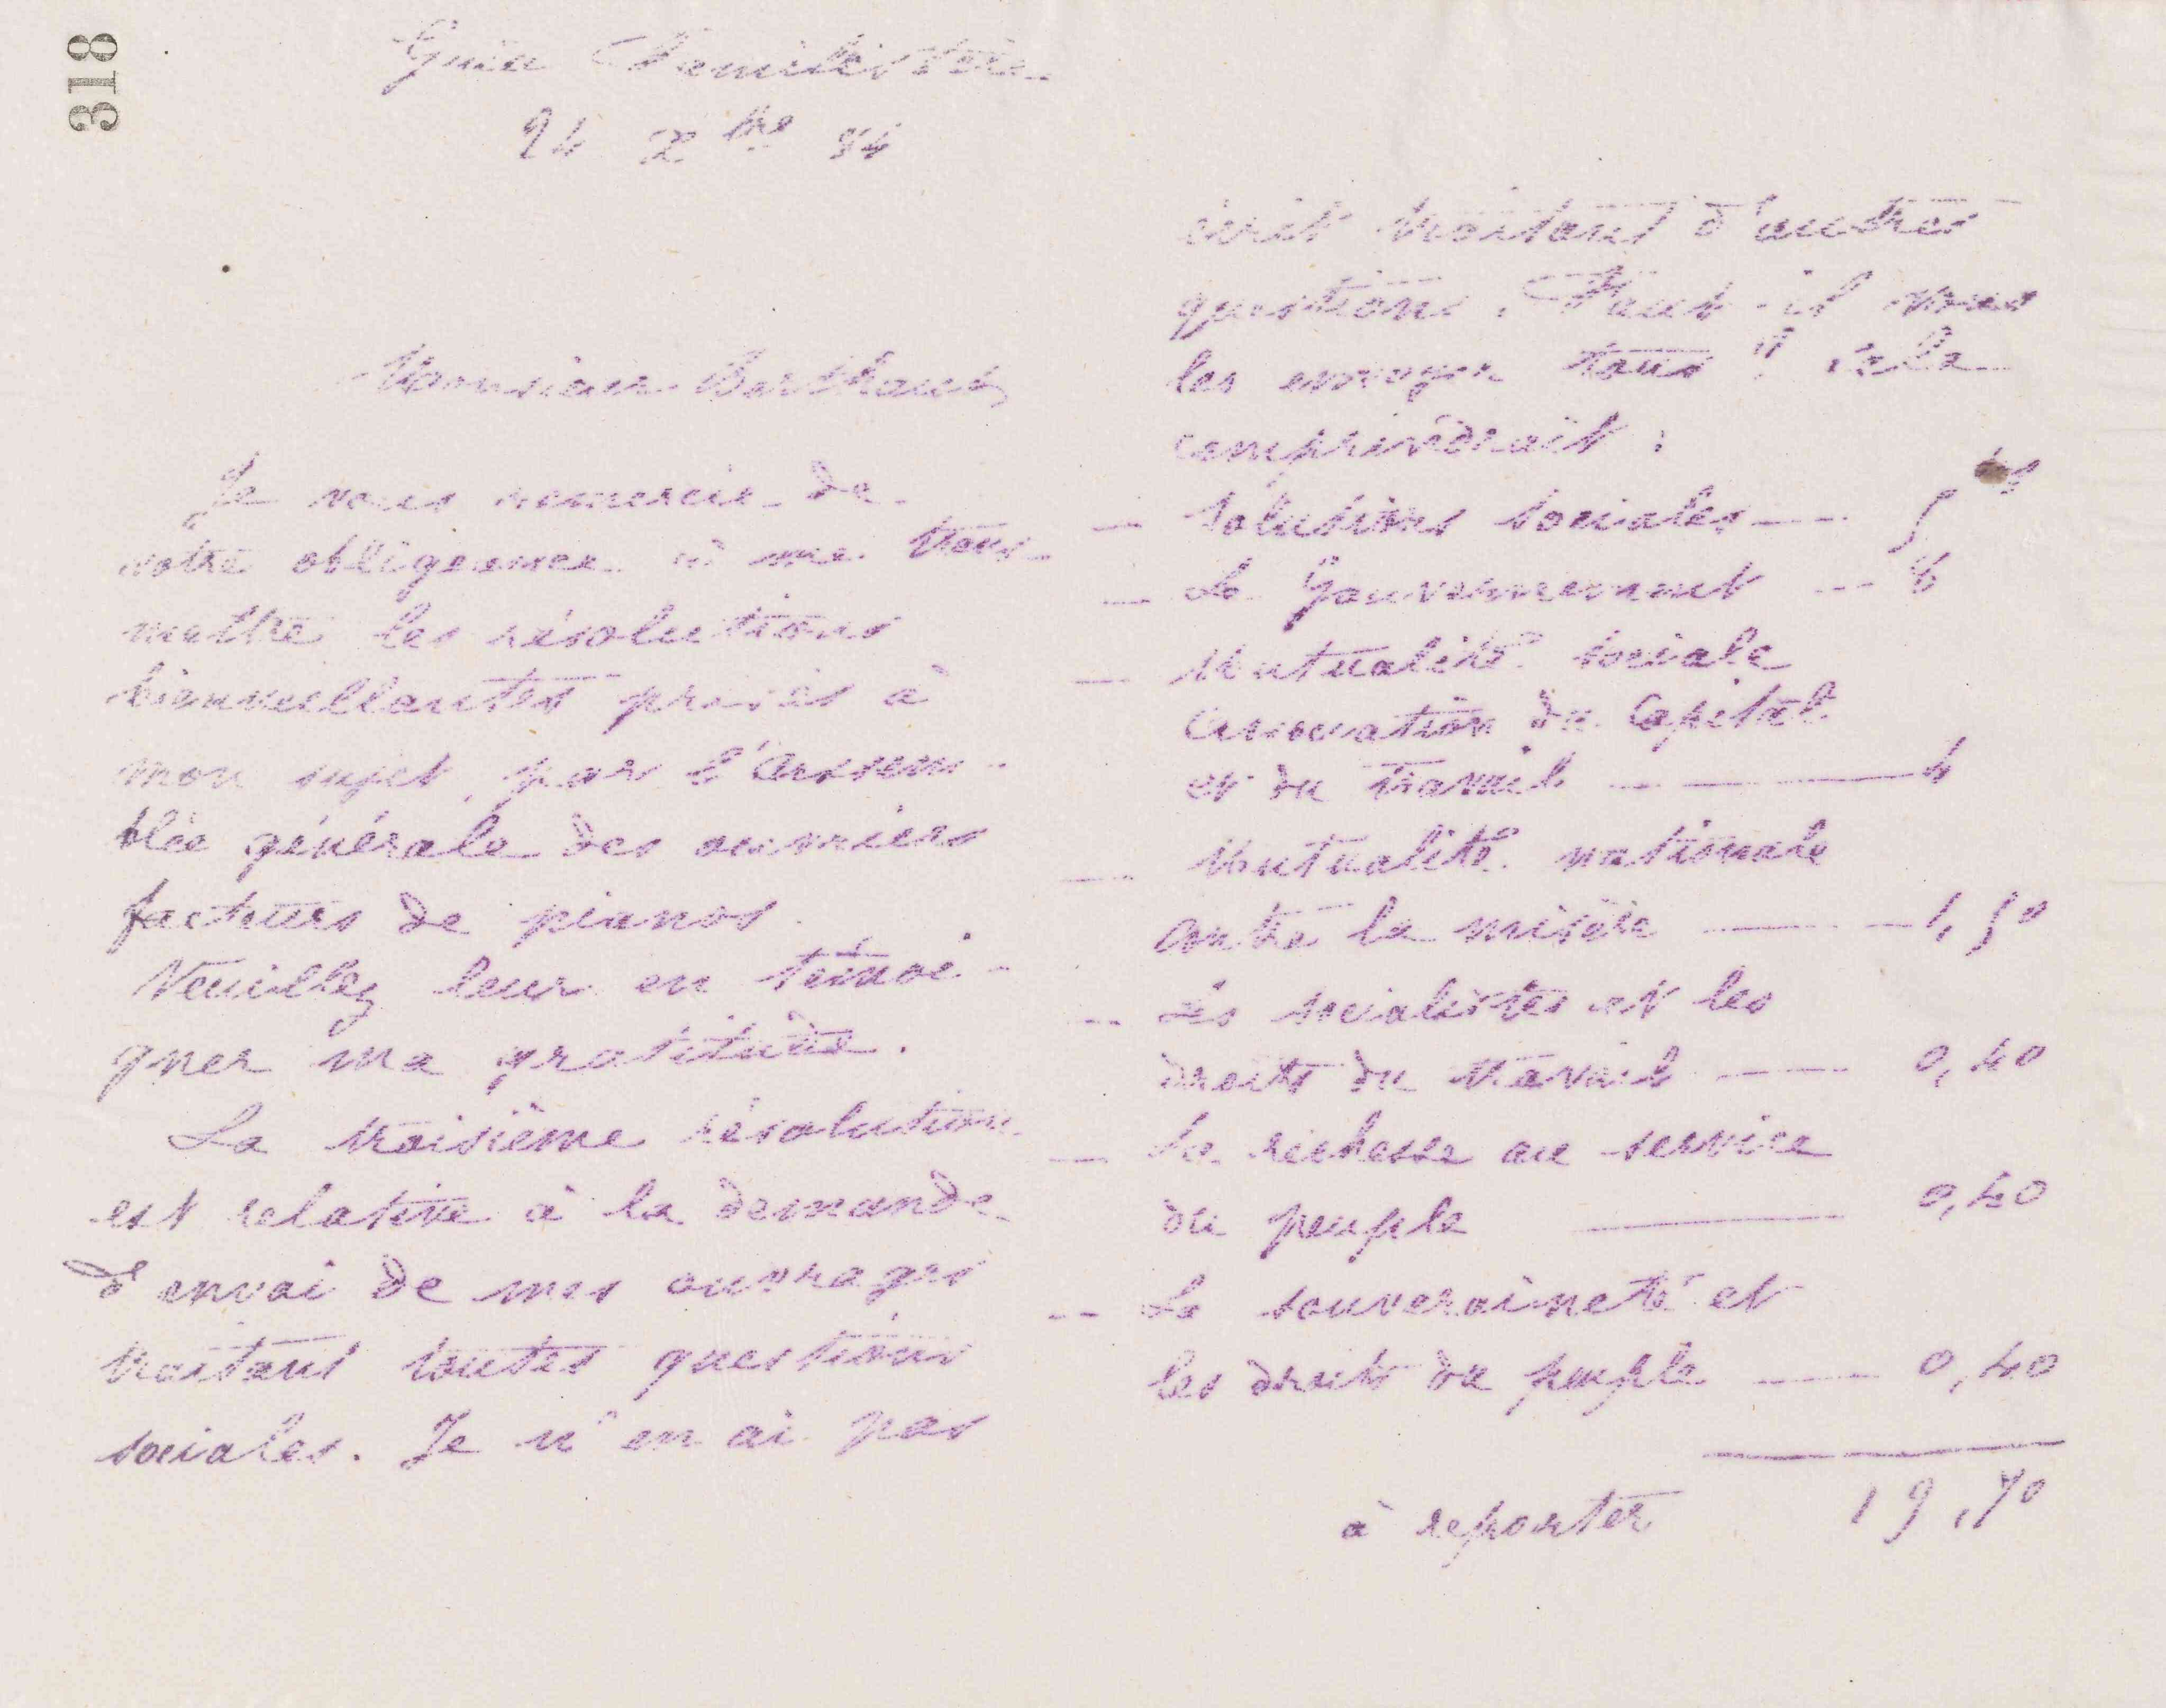 318
Guise Familistère
24 Xbre 84
Monsieur Berthaud,
Je vous remercie de
votre obligeance à me trans-
mettre les résolutions
bienveillantes prises à
mon sujet, par l'assem-
blée générale des ouvriers
facteurs de pianos.
Veuillez leur en témoi-
gner ma gratitude.
La troisième résolution
est relative à la demande
d'envoi de mes ouvrages
traitant toutes questions
sociales. Je n'en ai pas
écrit traitant d'autres
questions. Faut-il vous
les envoyer tous ? cela
comprendrait :
— Solutions sociales — 5
— Le Gouvernement — 8
— Mutualité sociale
association du Capital
et du travail — 4
— Mutualité nationale
contre la misère — 1,50
— Les socialistes et les
droits du travail — 0,40
— La richesse au service
du peuple — 0,40
— La souveraineté et
les droits du peuple — 0,40
à reporter 19,70